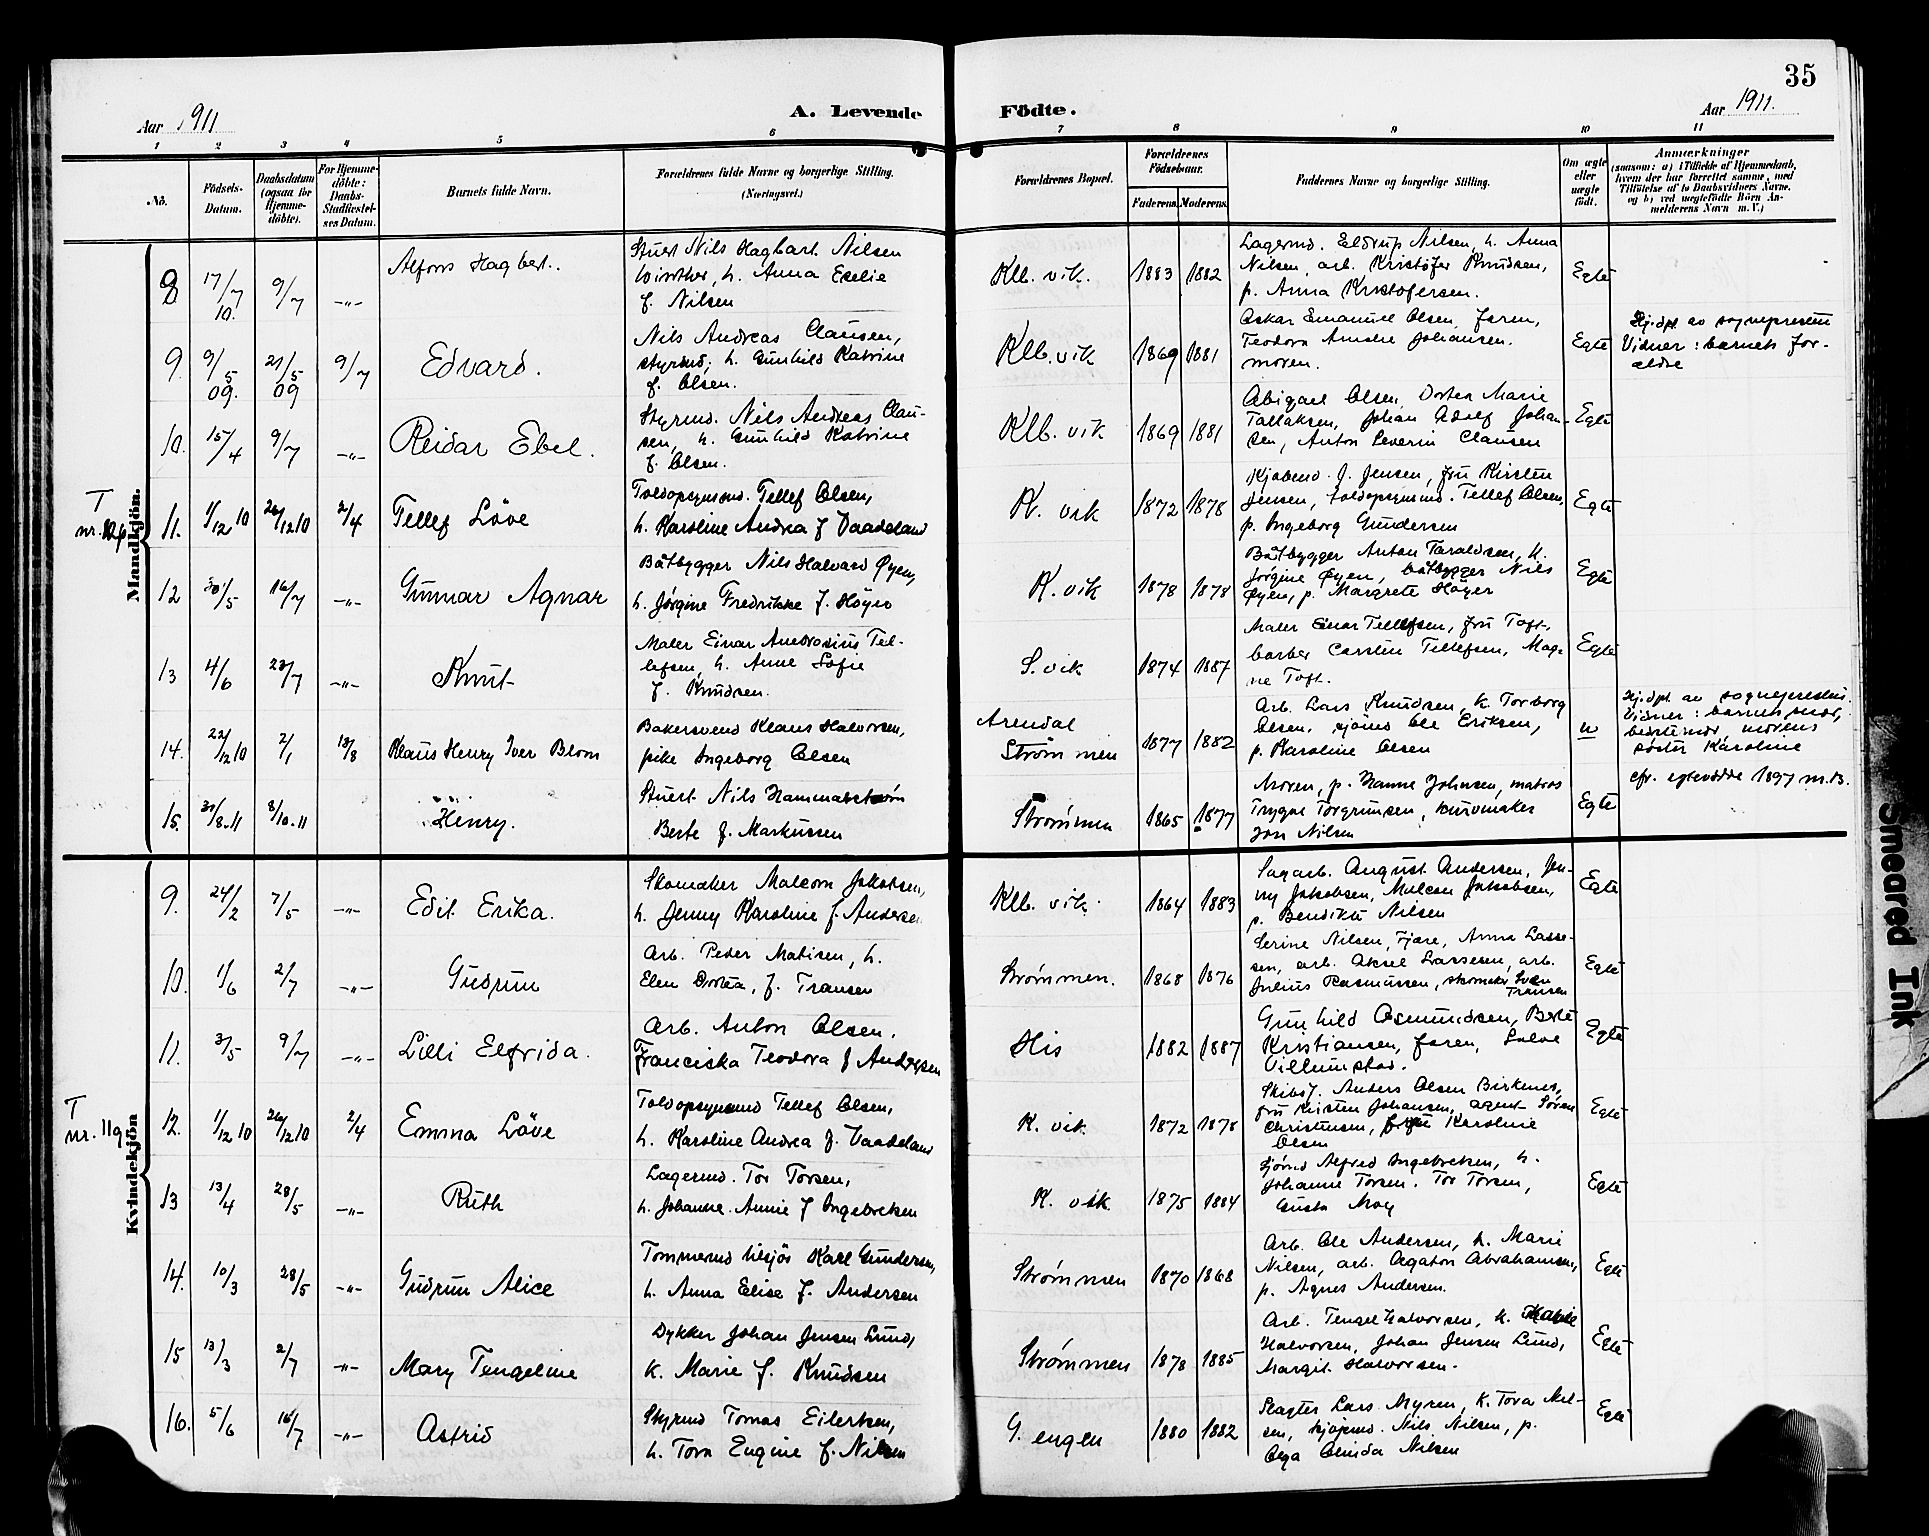 35
Aar 1911
A. Levende
Födte.
Aar 1911.
1 2 3 4 5 6 7 8 9 10 11
No.
Födsels-
Datum.
Daabsdatum
(ogsaa for
Hjemme-
döbte).
For Hjemme-
döbte:
Daabs-
Stadfæstel-
ses Datum.
Barnets fulde Navn.
Forældrenes fulde Navne og borgerlige Stilling.
(Næringsvei.)
Forældrenes Bopæl.
Forældrenes
Födselsaar.
Faderens. Moderens.
Faddernes Navne og borgerlige Stilling.
Om ægte
eller
uægte
født.
Anmærkninger
(saasom: a) i Tilfælde af Hjemmedaab,
hvem der har forrettet samme, med
Tilföielse af to Daabsvidners Navne,
og b) ved uægtefödte Börn An-
melderens Navn m. V.)
Mandkjön.
8 17/7 10. 9/7 -"- Alfons Hagbert.
Stuert Nils Hagbart Nilsen
Winther, h. Anna Exelie
f. Nilsen
Klb. vik. 1883 1882
Lagermd. Eldrup Nilsen, h. Anna
Nilsen, arb. Kristofer Knudsen,
p. Anna Kristofersen.
Egte
9. 9/5 09. 21/5 09 9/7 Edvard.
Nils Andreas Clausen,
styrmd; h. Gunhild Katrine
f. Olsen.
Klb. vik 1869 1881
Oskar Emanuel Olsen, faren,
Teodora Amalie Johansen.
moren.
Egte
Hj.dpt. av sognepresten
Vidner: barnets for-
ældre
10. 15/4 9/7 -"- Reidar Ebel.
Styrmd. Nils Andreas Clau-
sen, h. Gunhild Katrine
f. Olsen.
Klb. vik 1869 1881
Abigael Olsen, Dortea Marie
Tallaksen, Johan Adolf Johan-
sen, Anton Severin Clausen
Egte
T
nr. 12q
11. 1/12 10 26/12 10 2/4 Tellef Löve
Toldopsynsmd. Tellef Olsen,
h. Karoline Andrea f Vaadeland
K. vik 1872 1878
Kjøbmd. J. Jensen, fru Kirsten
Jensen, toldopsynsmd. Tellef Olsen,
p. Ingeborg Gundersen
Egte
12 30/5 16/7 -"- Gunnar Agnar
Båtbygger Nils Halvard Øyen,
h. Jørgine Fredrikke f. Höyer
K. vik 1878 1878
Båtbygger Anton Taraldsen, h.
Jørgine Øyen, båtbygger Nils
Øyen, p. Margrete Höyer
Egte
13 4/6 23/7 -"- Knut
Maler Einar Ambrosius Tel-
lefsen, h. Anne Sofie
f. Knudsen.
S. vik 1874 1887
Maler Einar Tellefsen, fru Toft,
barber Carsten Tellefsen, Mag-
ne Toft.
Egte
14. 22/12 10 2/1 13/8 Klaus Henry Iver Blom
Bakersvend Klaus Halvorsen,
pike Ingeborg Olsen
Arendal
Strømmen 1877 1882
Arb. Lars Knudsen, k. Torborg
Olsen, sjömd Ole Eriksen,
p. Karoline Olsen
u
Hj.dpt. av sognepresten.
Vidner: barnets mor,
bestemor, morens
søster Karoline
15. 31/8.11 8/10.11 Henry.
Stuert Nils Hammarstrøm
Berte f. Markussen
Strømmen 1865 1877
Moren, p. Hanna Johnsen, matros
Trygve Torgrimsen, kurvmaker
Jon Nilsen
Egte
cfr. egteviede 1897 nr. 13.
Kvindekjön
9. 24/2 7/5 -"- Edit Erika.
Skomaker Malcom Jakobsen,
h. Jenny Karoline f. Andersen
Klb. vik. 1864 1883
Sagarb. August Andersen, Jen-
ny Jakobsen, Malcom Jakobsen,
p. Bendikte Nilsen
Egte
10. 1/6 2/7 -"- Gudrun
Arb. Peder Matisen, h.
Elen Dortea, f. Transen
Strømmen. 1868 1876
Serine Nilsen, Fjære, Anna Lasse-
sen, arb. Aksel Lassesen, arb.
Julius Rasmussen, skomaker Sven
Transen
Egte
11. 3/5 9/7 -"- Lilli Elfrida.
Arb. Anton Olsen,
Franciska Teodora f Andersen
His 1882 1887
Gunhild Osmundsen, Berte
Kristiansen, faren, Salve
Villumstad.
Egte
T
nr. 11q
12. 1/12 10 26/12 10 2/4 Emma Löve
Toldopsynsmd Tellef Olsen,
h. Karoline Andrea f. Vaadeland
K. vik 1872 1878
Skibsf. Anders Olsen Birkenes,
fru Kirsten Johansen, agent Søren
Christensen, frøken Karoline
Olsen
Egte
13 13/4 28/5 -"- Ruth
Lagermd. Tor Torsen,
h. Johanne Annie f Ingebretsen
K. vik 1875 1884
Sjömd Alfred Ingebretsen, h.
Johanne Torsen. Tor Torsen,
Gusta Moy
Egte
14. 10/3 28/5 -"- Gudrun Alice
Tømmermd tilsjös Karl Gundersen,
h. Anna Elise f. Andersen
Strømmen 1870 1868
Arb. Ole Andersen, h. Marie
Nilsen, arb. Agaton Abrahamsen,
p. Agnes Andersen.
Egte
15 13/3 2/7 -"- Mary Tengeline
Dykker Johan Jensen Lund,
k. Marie f. Knudsen
Strømmen 1878 1885
Arb. Tengel Halvorsen, k. Marie
Halvorsen, Johan Jensen Lund,
Margit Halvorsen.
Egte
16. 5/6 16/7 -"- Astrid
Styrmd Tomas Eilertsen,
h. Tora Engine f. Nilsen
G. engen 1880 1882
Slagter Lars Myren, k. Tora Niel-
sen, kjøpmd. Nils Nilsen, p.
Olga Elmida Nilsen
Egte
Smeared Ink